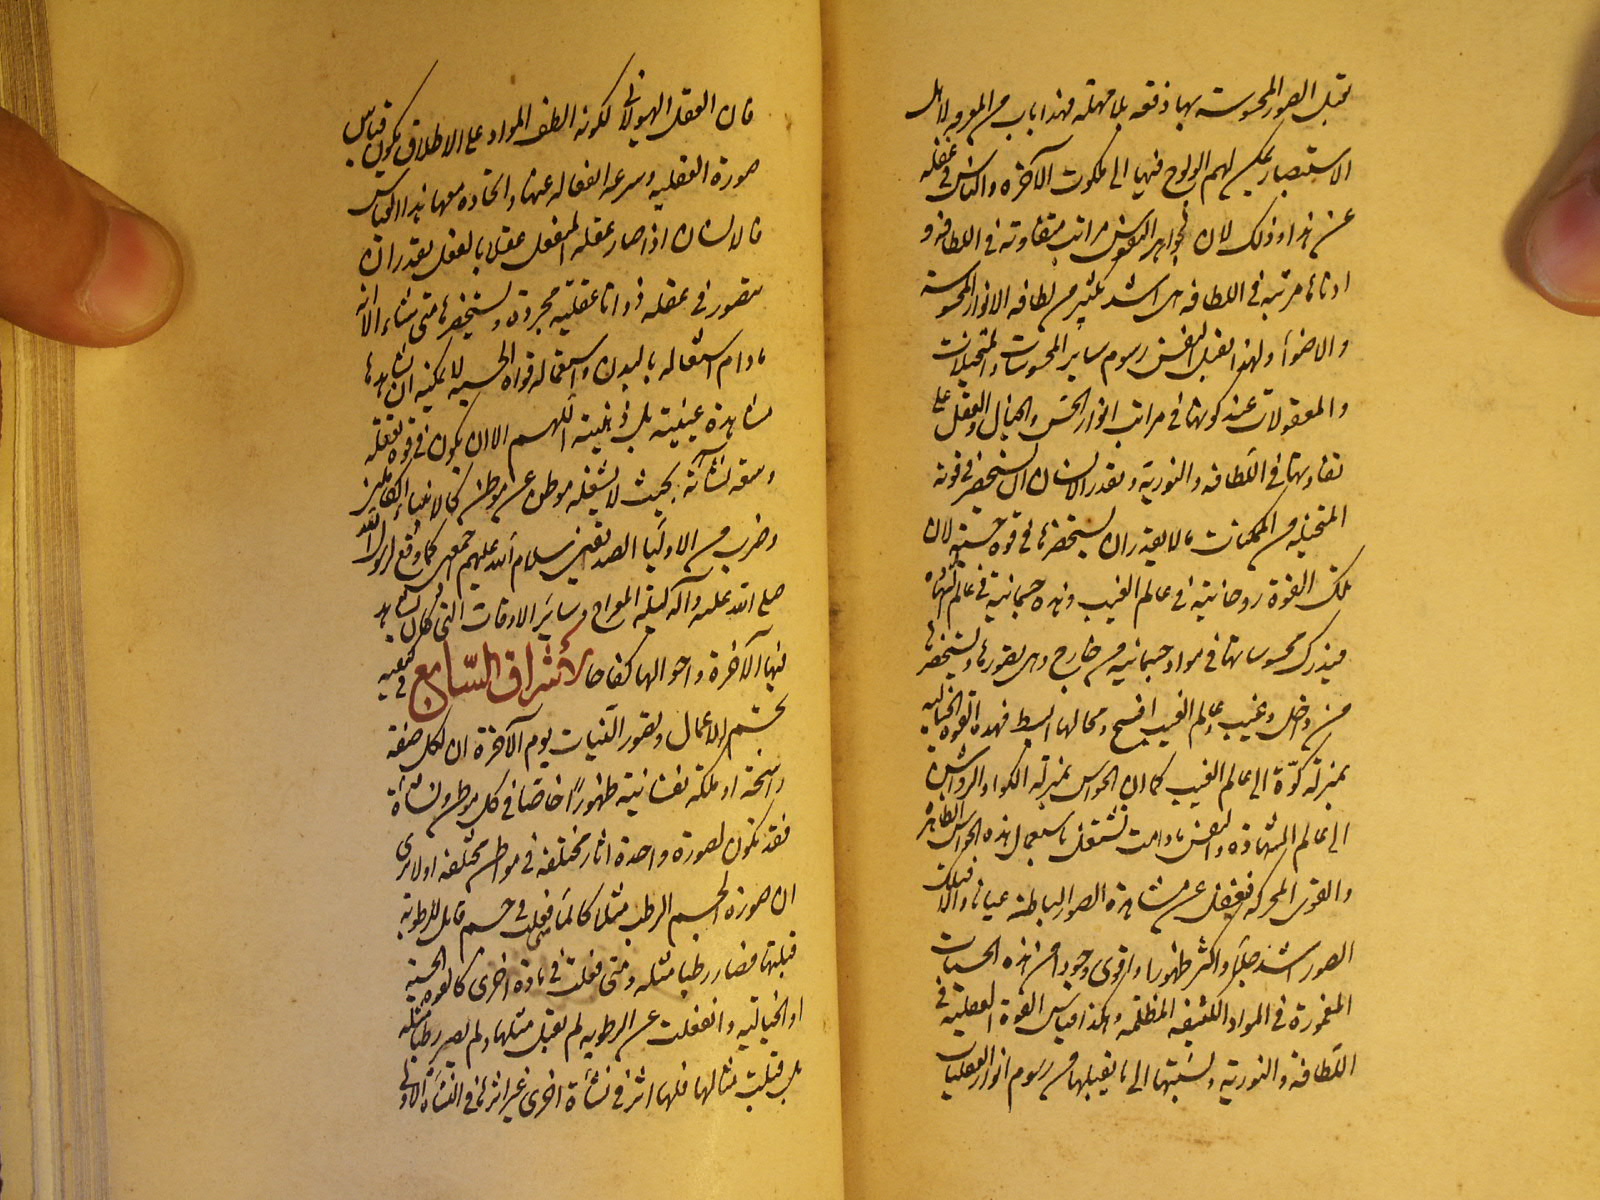 تقبل الصور المحسوسة بها دفعة بلا مهلة فهذا باب من المعرفة لاهل
الاستبصار يمكن لهم الولوج فيها الى ملكوت الآخرة والناس في غفلة
عن هذا وذلك لان جواهر النفوس مراتب متفاوتة في اللطافة و
ادناها مرتبة في اللطافة هي اشد بكثير من لطافة الانوار المحسوسة
والاضواء ولهذا تقبل النفس رسوم سائر المحسوسات والمتخيلات
والمعقولات عند كونها في مراتب انوار الحس والخيال والعقل على
تفاوتها في اللطافة والنورية ويقدر الانسان ان يستحضر في قوته
المتخيلة من الممكنات ما لا يقدر ان يستحضرها في قوة حسية لان
تلك القوة روحانية في عالم الغيب وهذه جسمانية في عالم الشهادة
فيدرك محسوساتها في مواد جسمانية من خارج وهي يصورها ويستحضرها
من داخل وغيب وعالم الغيب افسح ومحالها ابسط فهذه القوة الخيالية
بمنزلة كوّة الى عالم الغيب كما ان الحواس بمنزلة الكوا والرواشن
الى عالم الشهادة والنفس ما دامت تشتغل باستعمال هذه الحواس الظاهرة
والقوى المحركة فيغفل عن مشاهدة الصور الباطنة عيانا والا فتلك
الصور اشد جلاء واكثر ظهورا واقوى وجودا من هذه الحسيات
المغمورة في المواد الكثيفة المظلمة وهكذا قياس القوة العقلية في
اللطافة والنورية ونسبتها الى ما يقبلها من رسوم انوار العقليات
فان العقل الهيولاني لكونه الطف المواد على الاطلاق يكون قياس
صورة العقلية وسرعة انفعاله عنها واتحاده معها هذا القياس
فالانسان اذا صار عقله المنفعل عقلا بالفعل يقدر ان
يتصور في عقله ذواتا عقلية مجردة ويستحضرها متى شاء الا انه
ما دام اشتغاله بالبدن واستعماله قواه الحسية لا يمكنه ان يشاهدها
مشاهدة عينية بل ذهنية اللهم الا ان يكون في قوة تعقله
وسعة نشأته بحيث لا يشغله موطن عن موطن كالانبياء الكاملين
وضرب من الاولياء الصديقين سلام الله عليهم جمعين كما وقع لرسول الله
صلى الله عليه وآله ليلة المعراج وسائر الاوقات التي كان يشاهد
فيها الآخرة واحوالها كفاحا الاشراق السابع في كيفية
تجسّم الاعمال وتصور النيات يوم الآخرة ان لكل صفة
راسخة او ملكة نفسانية ظهورًا خاصّا في كل موطن ونشأة
فقد تكون لصورة واحدة اثار مختلفة في مواطن مختلفة اولا ترى
ان صورة الجسم الرطب مثلا كما لما فعلت في جسم قابل للرطوبة
قبلتها فصار رطبا مثله ومتى فعلت في مادة اخرى كالقوة الحسية
او الخيالية وانفعلت عن الرطوبة لم تقبل مثلها ولم يصر رطبا مثله
بل قبلت مثالها فلها اثر في نشأة اخرى غير اثرها في النشأة الاولى